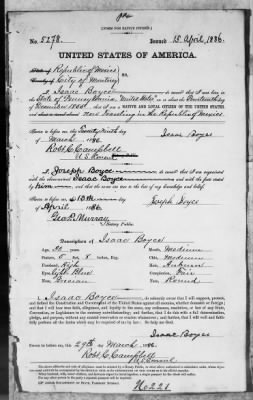 [FORM FOR NATIVE CITIZEN.]
No. 5278. Issued 15 April, 1886.
UNITED STATES OF AMERICA.
State of Republic of Mexico
County of City of Monterey ss.
I, Isaac Boyce, do swear that I was born in the
State of Pennsylvania, United States on or about the Fourteenth day
of December 1860, that I am a NATIVE AND LOYAL CITIZEN OF THE UNITED STATES,
now traveling in the Republic of Mexico.
Sworn to before me, this Twenty Ninth day
of March 1886. Isaac Boyce
Robt C. Campbell
U.S. Consul
I, Joseph Boyce, do swear that I am acquainted
with the above-named Isaac Boyce and with the facts stated
by him and that the same are true to the best of my knowledge and belief.
Sworn to before me, this 10th day
of April 1886. Joseph Boyce
Geo. P. Murray
Notary Public.
Description of Isaac Boyce
Age, Mouth, Medium
Stature, 5 feet, 8 inches, Eng. Chin, Medium
Forehead, High Hair, Auburn
Eyes, Light Blue Complexion, Fair
Nose, Grecian Face, Round
I, Isaac Boyce, do solemnly swear that I will support, protect,
and defend the Constitution and Government of the United States against all enemies, whether domestic or foreign; and
that I will bear true faith, allegiance, and loyalty to the same, any ordinance, resolution, or law of any State,
Convention, or Legislature to the contrary notwithstanding; and further, that I do this with a full determination,
pledge, and purpose, without any mental reservation or evasion whatsoever; and further, that I will well and faith-
fully perform all the duties which may be required of me by law. So help me God.
Isaac Boyce
Sworn to before me, this 29th day of March 1886.
Robt C. Campbell
U.S. Consul
No 221.